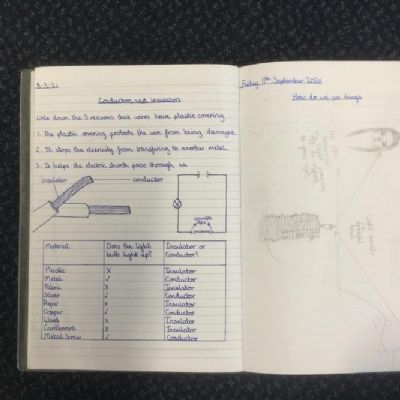 8.3.21
Conductors and insulators
Write down the 3 reasons that wires have plastic covering
1. The plastic covering protects the wire from being damaged.
2. It stops the electricity from transfering to another metal.
3. It helps the electric shock pass through us.
insulator conductor
Material Does the light bulb light up? Insulator or Conductor?
Plastic x Insulator
Metal ✓ Conductor
Fabric x Insulator
Silver ✓ Conductor
Paper x Insulator
Copper ✓ Conductor
Wood x Insulator
Cardboard x Insulator
Metal Screw ✓ Conductor
Friday 11th September 2020
How do we see things